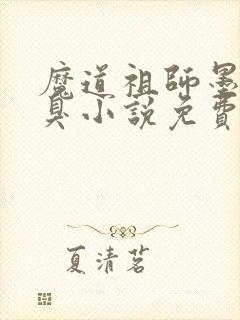 魔道祖師墨
臭小說免費
夏清茗